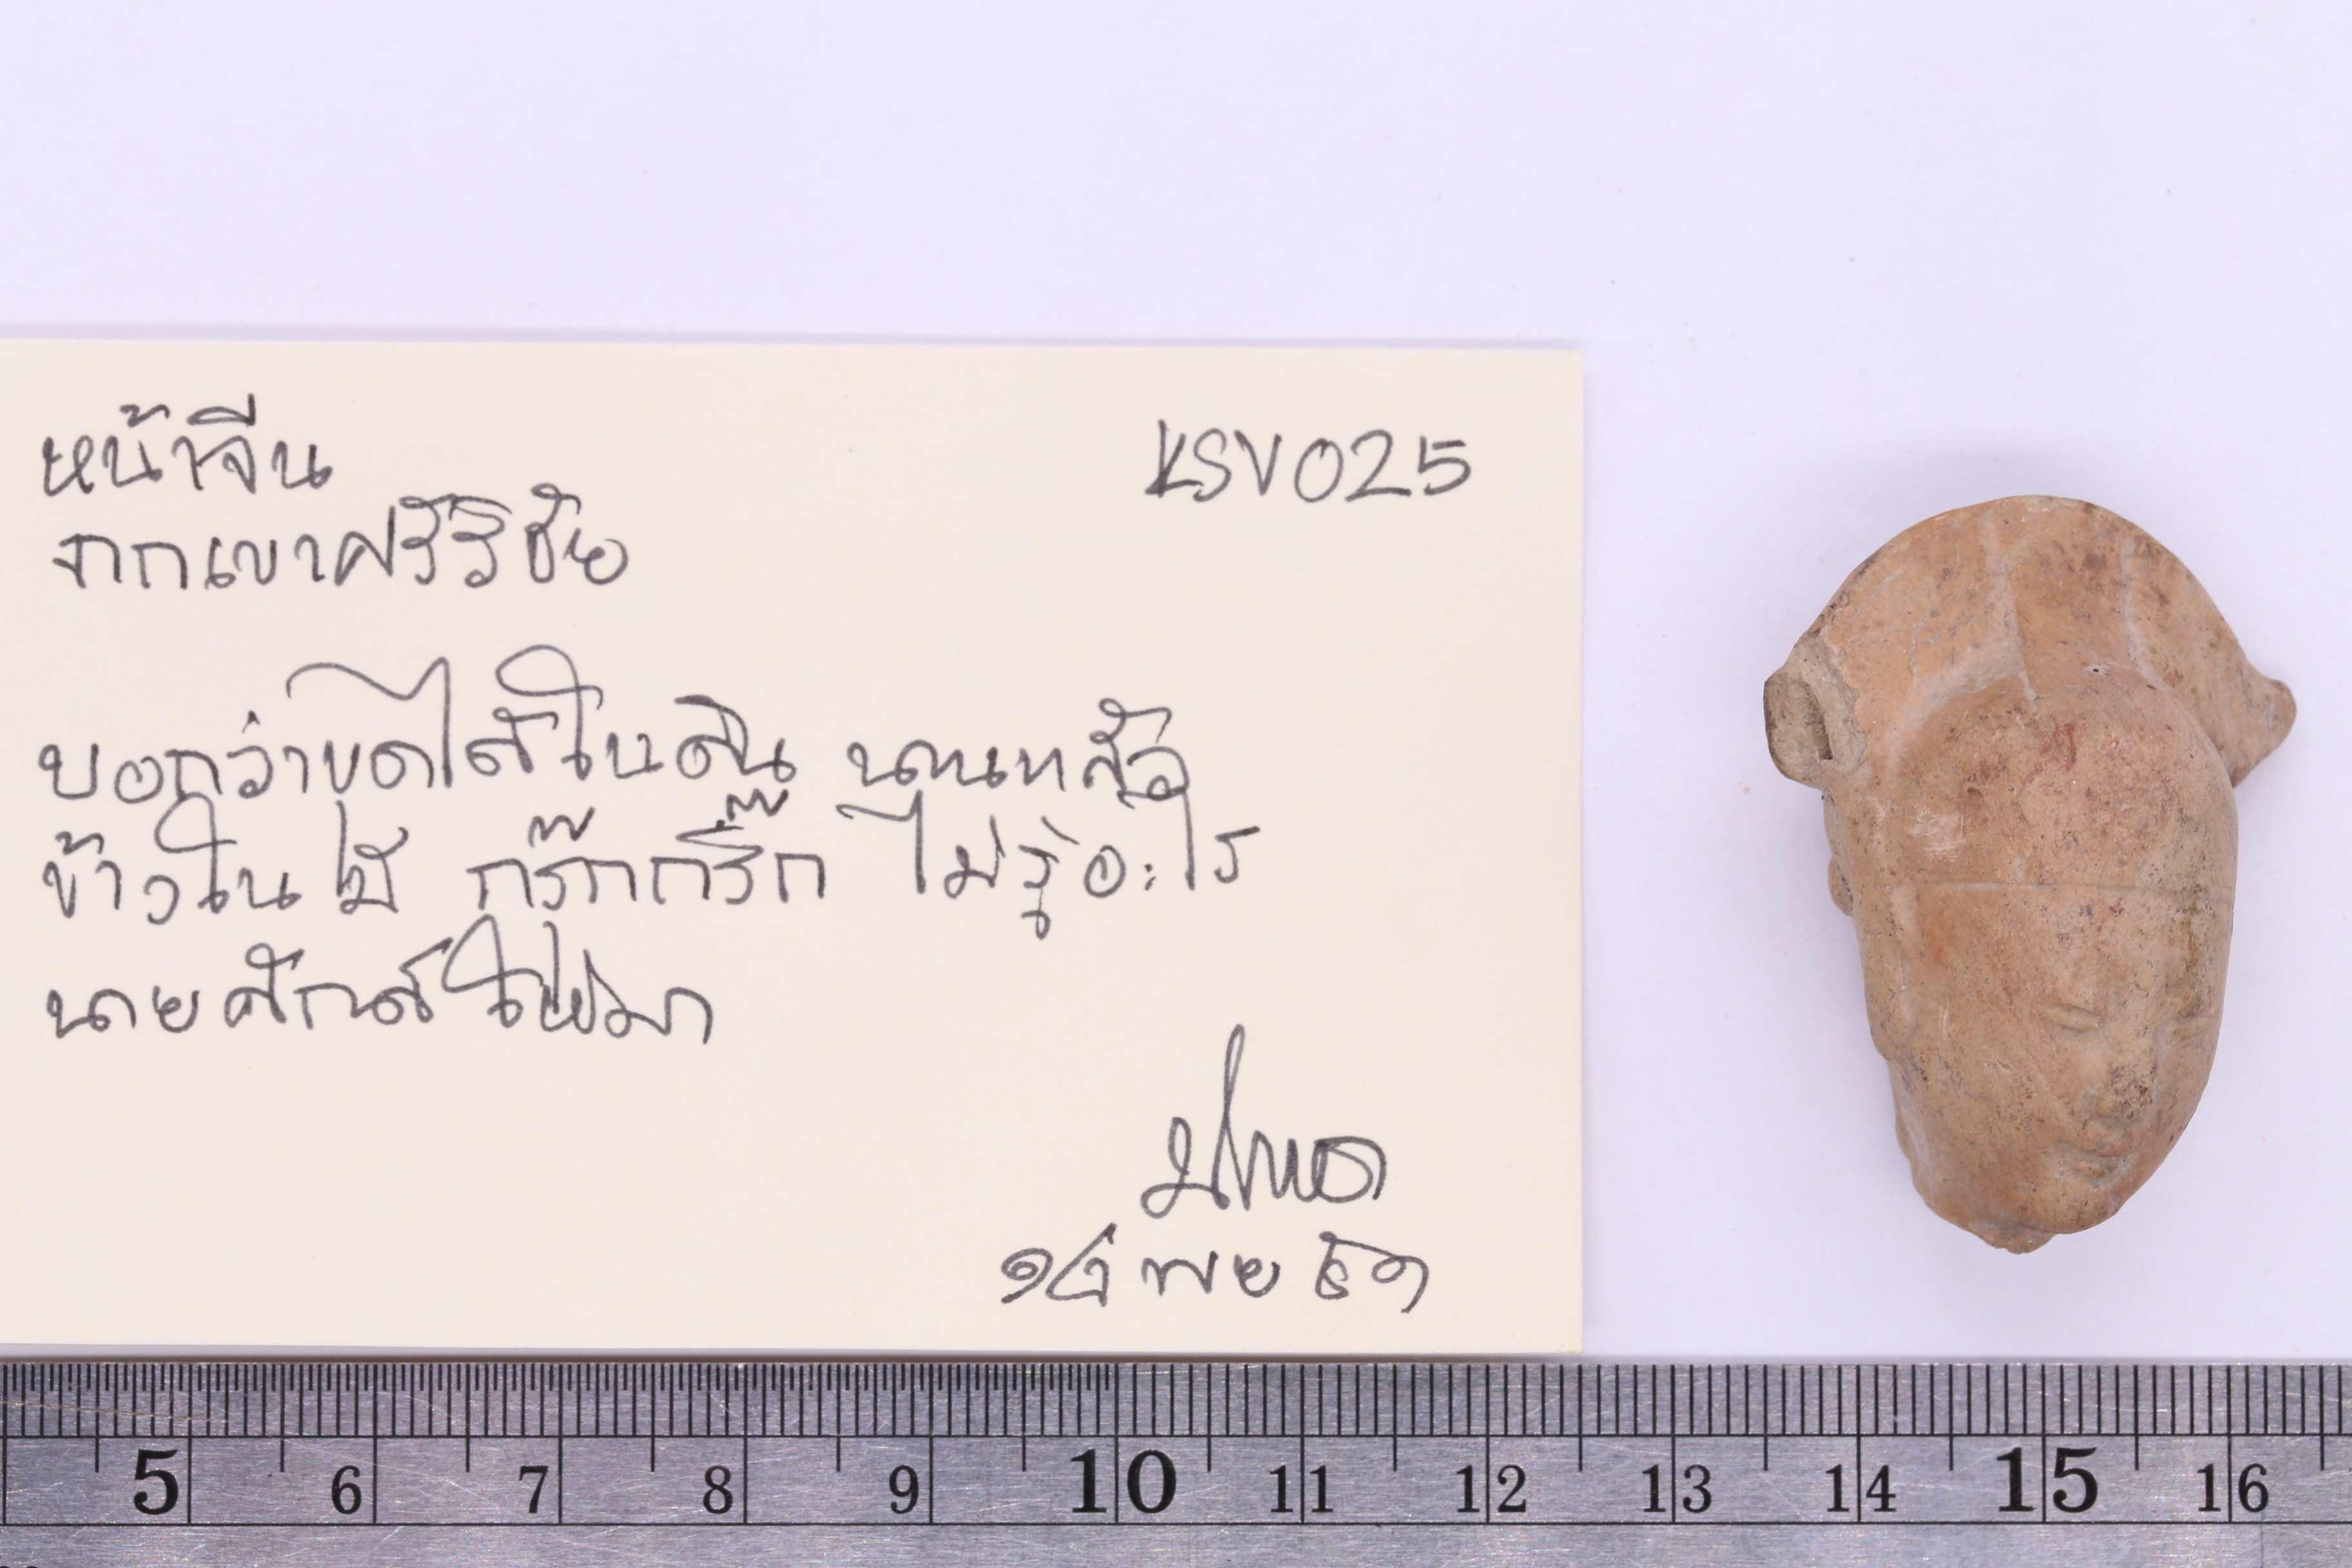 หน้าจีน
KSV025
จากเขาศรีวิชัย
บอกว่าขุดได้ในดิน นานแล้ว
ข้างใน มี กริ๊กกริ๊ก ไม่รู้อะไร
นายศักดิ์ให้มา
๑๘ พย ๖๑
5 6 7 8 9 10 11 12 13 14 15 16